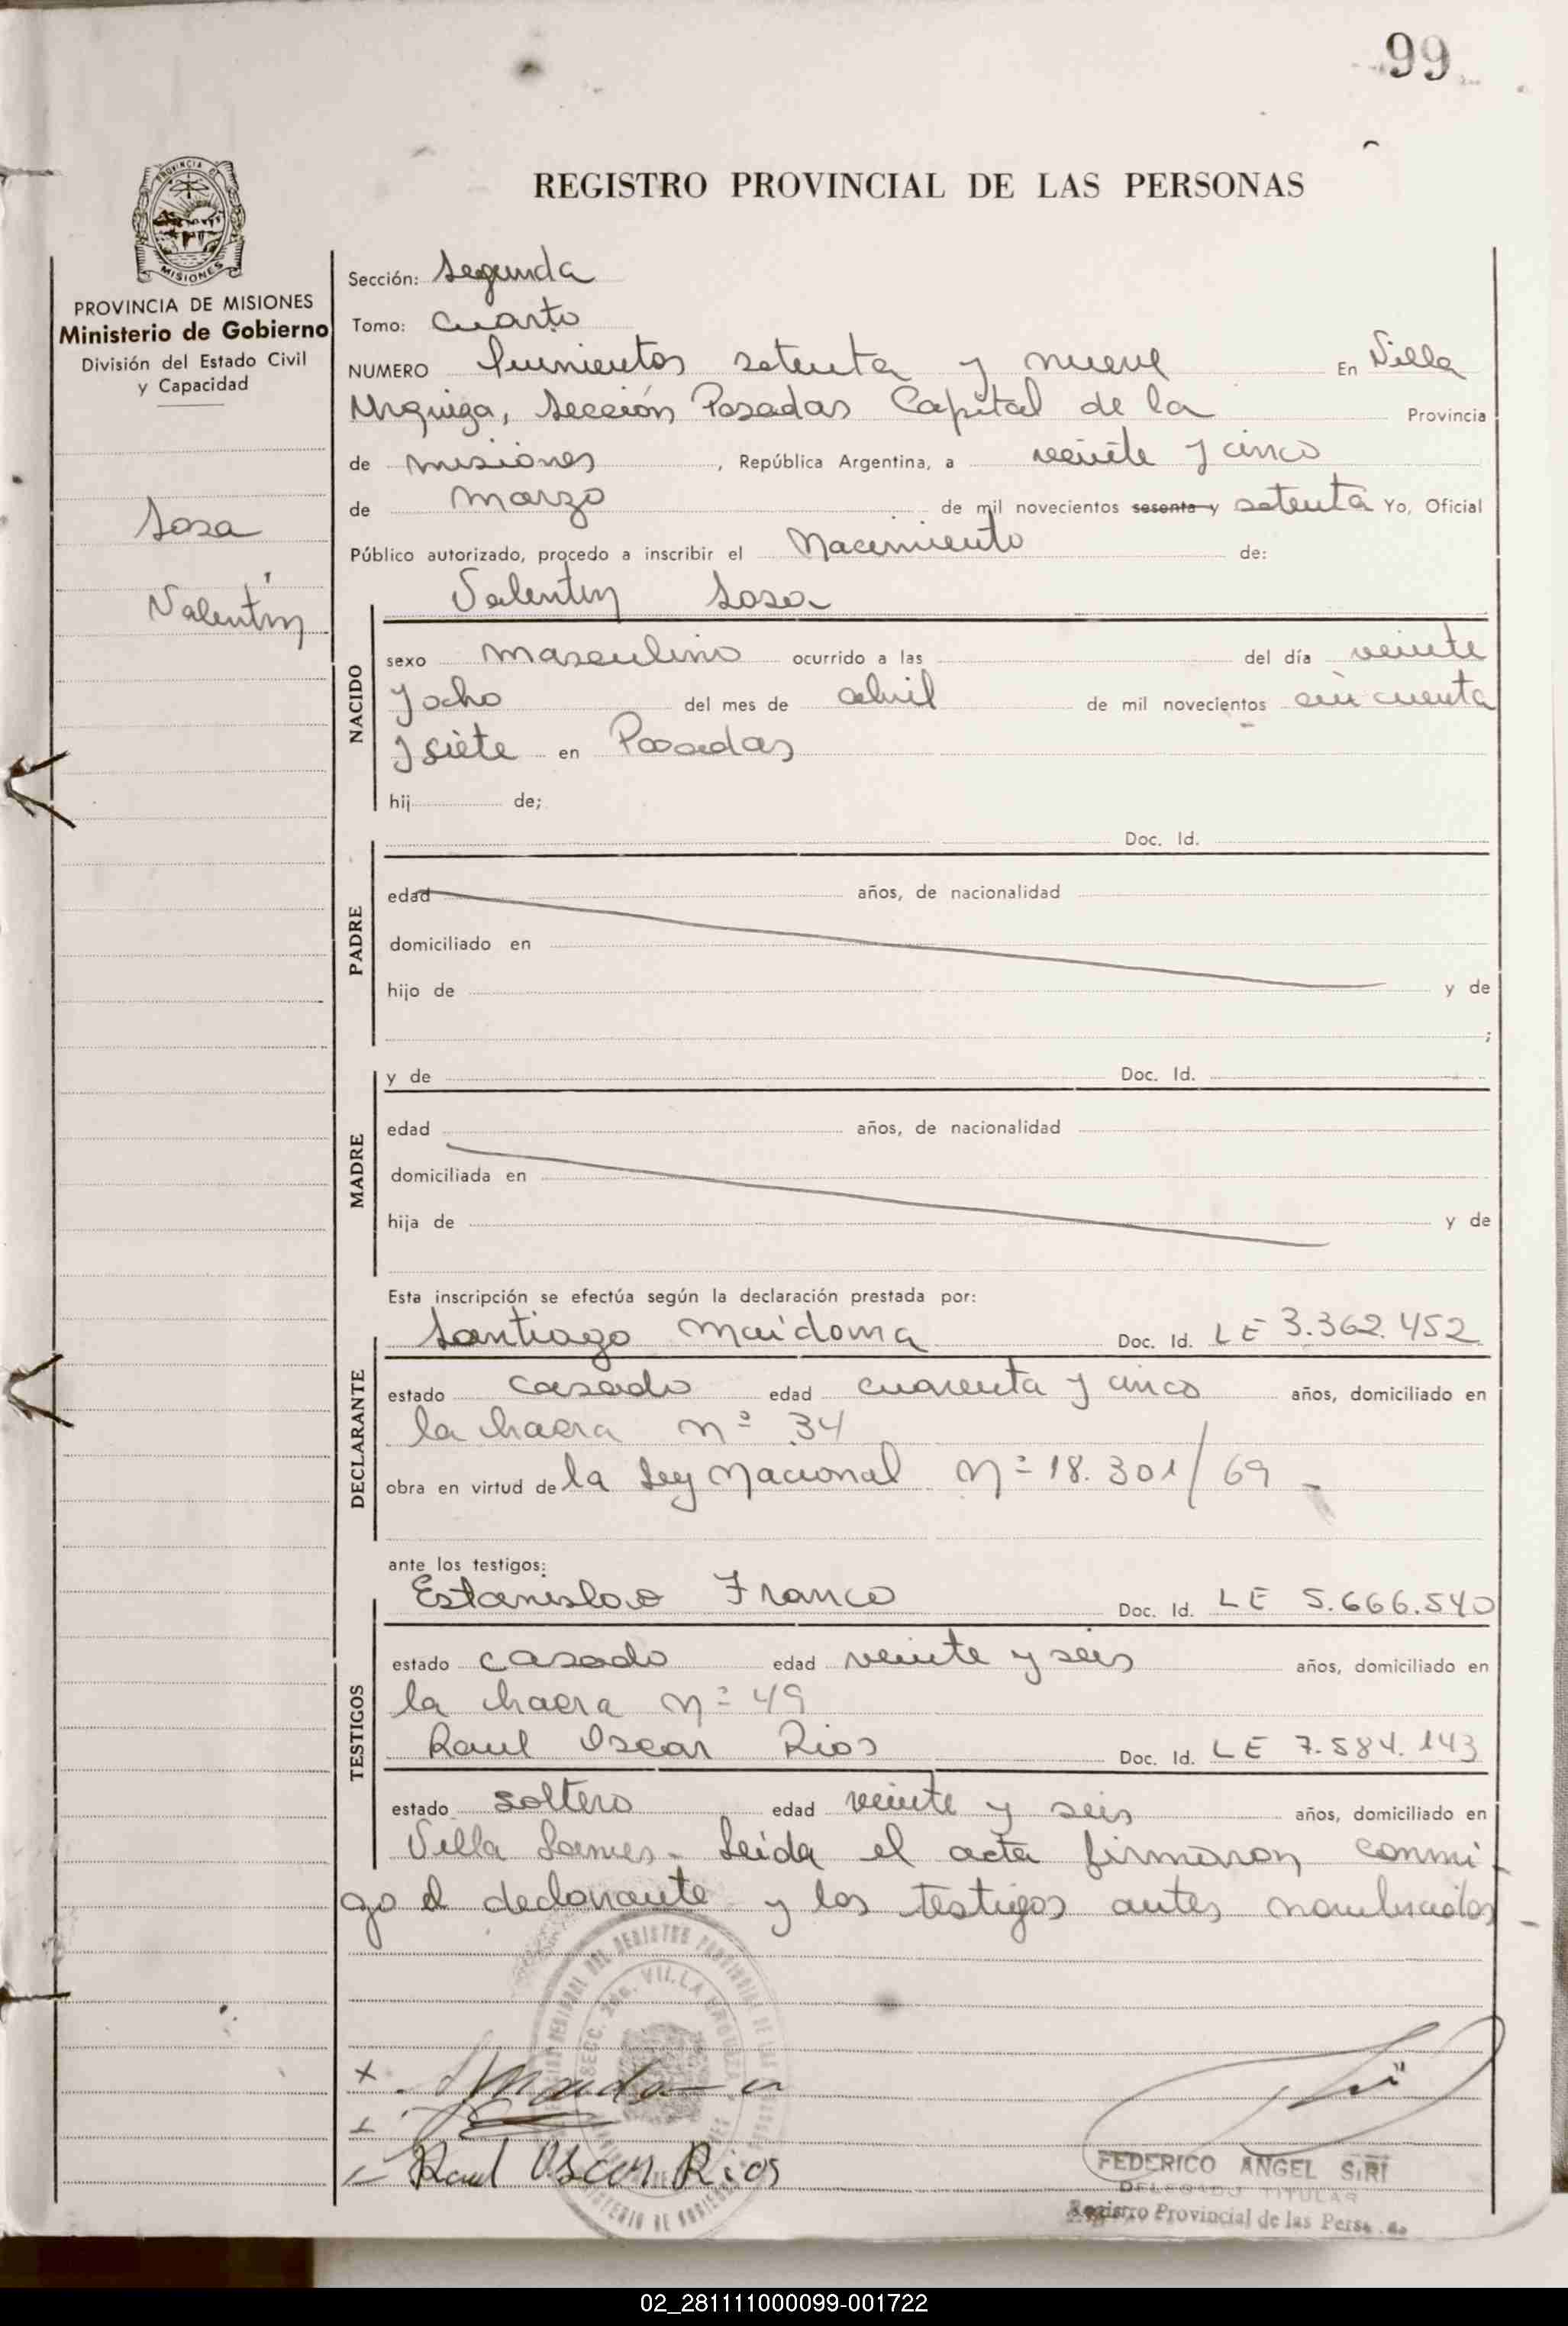 99
PROVINCIA DE MISIONES
PROVINCIA DE MISIONES
Ministerio de Gobierno
División del Estado Civil
y Capacidad
Sosa
Valentín
REGISTRO PROVINCIAL DE LAS PERSONAS
Sección: Segunda
Tomo: Cuarto
NUMERO Quinientos setenta y nueve En Villa
Urquiza, Sección Posadas Capital de la Provincia
de misiones, República Argentina, a veinte y cinco
de marzo de mil novecientos sesenta y setenta Yo, Oficial
Público autorizado, procedo a inscribir el Nacimiento de:
Valentín Sosa
NACIDO
sexo masculino ocurrido a las del día veinte
y ocho del mes de abril de mil novecientos cincuenta
y siete en Posadas
hij de;
PADRE
Doc. Id.
edad años, de nacionalidad
domiciliado en
hijo de y de
;
MADRE
y de Doc. Id.
edad años, de nacionalidad
domiciliada en
hija de y de
Esta inscripción se efectúa según la declaración prestada por:
DECLARANTE
Santiago Maidona Doc. Id. LE 3.362.452
estado casado edad cuarenta y cinco años, domiciliado en
la chacra nº 34
obra en virtud de la Ley Nacional Nº 18.301/69
ante los testigos:
TESTIGOS
Estanislao Franco Doc. Id. LE 5.666.540
estado casado edad veinte y seis años, domiciliado en
la chacra nº 49
Raul Oscar Rios Doc. Id. LE 7.584.143
estado soltero edad veinte y seis años, domiciliado en
Villa Lanus. Leída el acta firmaron conmi-
go el declarante y los testigos antes nombrados
SECC. 2da. VILLA URQUIZA
Raul Oscar Rios
FEDERICO ANGEL SIRI
DELEGADO TITULAR
Registro Provincial de las Personas
02_281111000099-001722